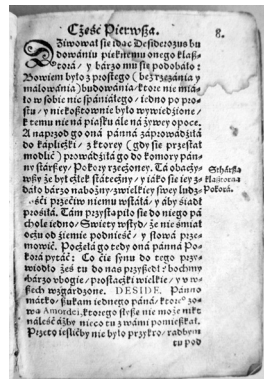 Część Pierwsza.
8.
Dziwował sie idąc Desiderozus bu
dowániu pięknemu onego klaß-
torá / y bárzo mu się podobało:
Bowiem było z prostego (bez rzezánia y
málowánia) budowánia / ktore nie miá-
ło w sobie nic spániáłego / iedno po pro-
stu / y nikoßtownie było wywiedzione /
k temu nie ná piasku ále ná żywey opoce.
A naprzod go oná pánná záprowádźiłá
do káplicżki / z ktorey (gdy sie przestał
modlić) prowádźiłá go do komory pán-
ny stárßey / Pokory rzecżoney. Tá obacży-
wßy że był cżłek státecżny / y iáko sie iey z-
dáło bárzo nabożny / z wielkiey swey ludz-
kośći przećiw niemu wstáłá / y áby śiadł
prośiłá. Tám przystąpiło sie do niego pá-
cholę iedno / Święty wstyd / że nie śmiał
ocżu od źiemie podnieść / y słowá prze-
mowić. Pocżęłá go tedy oná pánná Po-
korá pytáć: Co ćie synu do tego przy-
wiodło żeś tu do nas przyßedł: bochmy
bárzo vbogie / prostacżki wielkie / y v w-
ßech wzgárdzone. DESIDE. Pánno
mátko / ßukam iednego páná / ktore° zo-
wą Amordei / ktorego słyßę nie może nikt
náleść áżby nieco tu z wámi pomießkał.
Przeto ieśliby nie było przykro / rádbym
tu pod
Stárßa
Klasztorna
Pokorá.